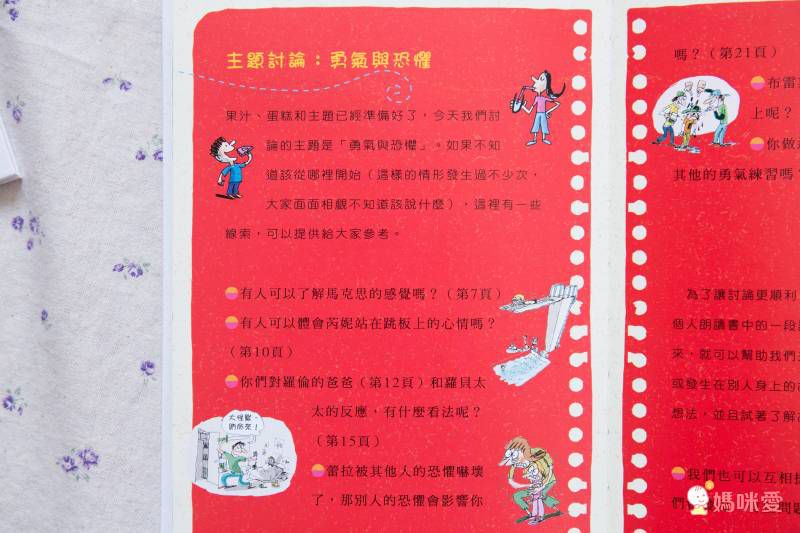 主題討論：勇氣與恐懼
果汁、蛋糕和主題已經準備好了，今天我們討
論的主題是「勇氣與恐懼」。如果不知
道該從哪裡開始（這樣的情形發生過不少次，
大家面面相覷不知道該說什麼），這裡有一些
線索，可以提供給大家參考。
有人可以了解馬克思的感覺嗎？（第7頁）
有人可以體會芮妮站在跳板上的心情嗎？
（第10頁）
你們對羅倫的爸爸（第12頁）和蘿貝太
太的反應，有什麼看法呢？
（第15頁）
蕾拉被其他人的恐懼嚇壞
了，那別人的恐懼會影響你
大怪獸，
納命來！
嗎？（第21頁）
布雷
上呢？
你做
其他的勇氣練習嗎？
為了讓討論更順利
個人朗讀書中的一段
來，就可以幫助我們
或發生在別人身上的
想法，並且試著了解
我們也可以互相
們
問題
媽咪愛